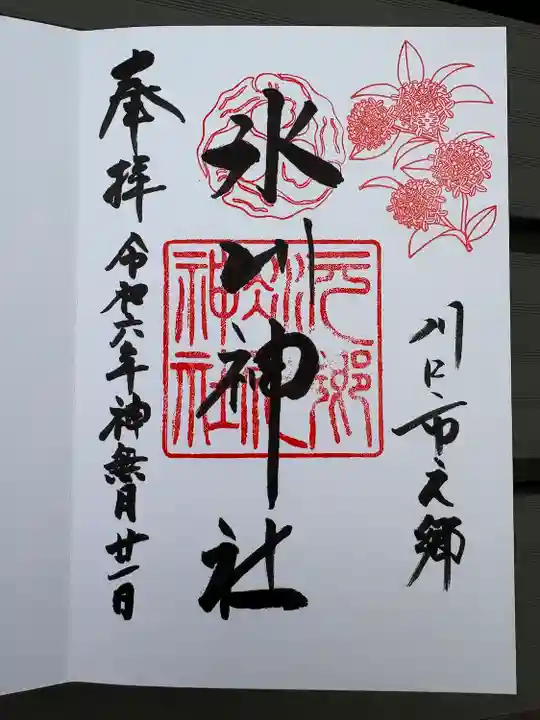 川口市元郷
氷川神社
元郷
氷川
神社
奉拝
令和六年神無月廿一日